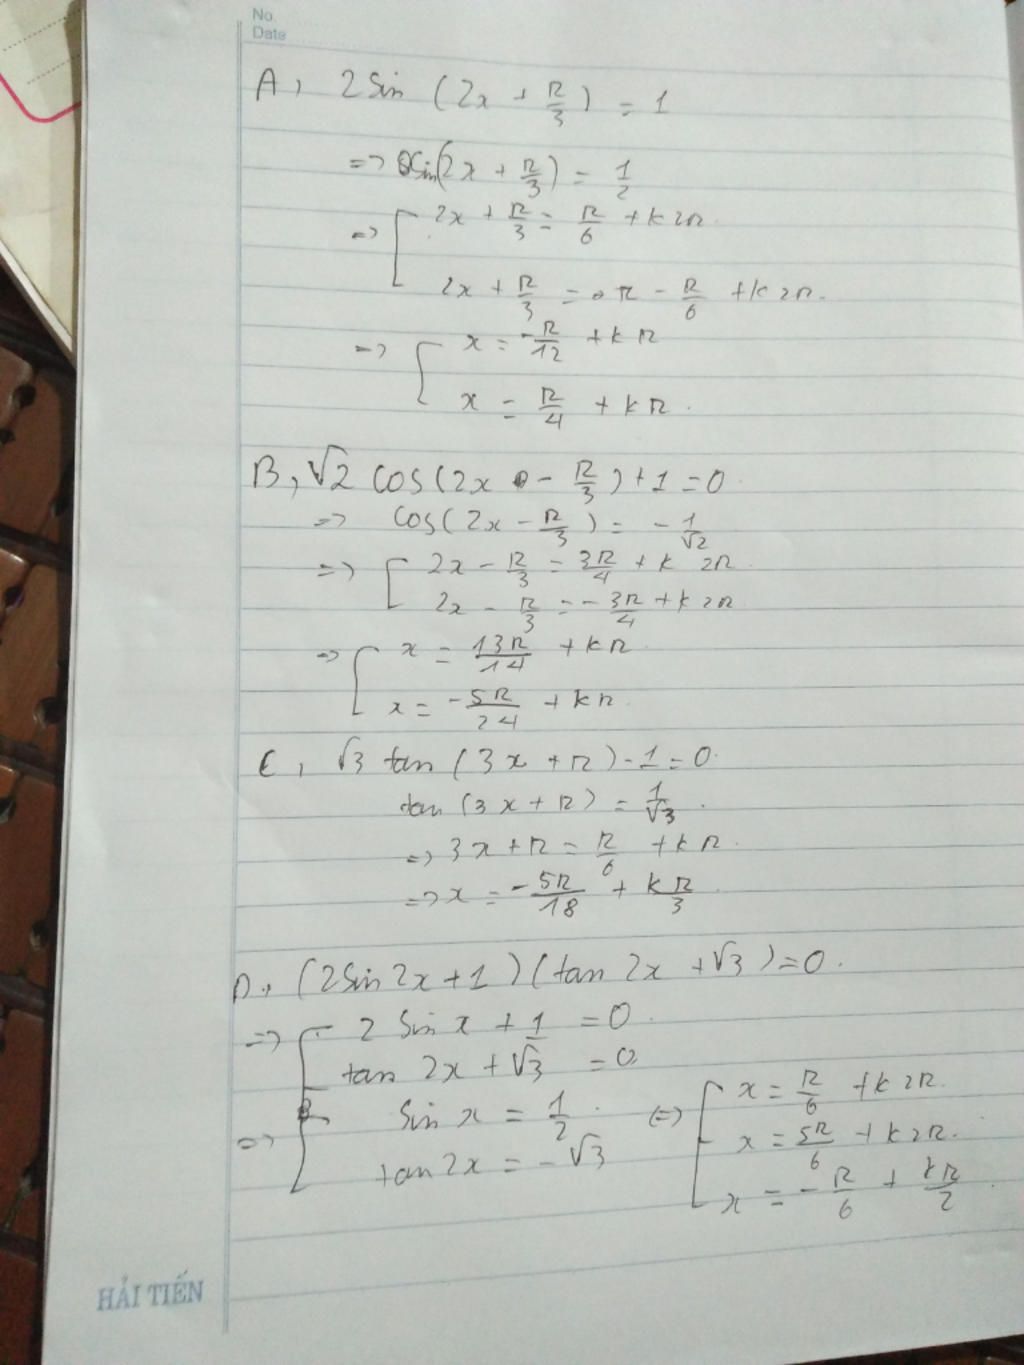 No.
Date
A, 2 Sin (2x + π/3) = 1
=> Sin(2x + π/3) = 1/2
=> [ 2x + π/3 = π/6 + k2π.
2x + π/3 = π - π/6 + k2π.
=> [ x = -π/12 + kπ
x = π/4 + kπ.
B, √2 cos(2x - π/3) + 1 = 0
=> cos(2x - π/3) = - 1/√2
=> [ 2x - π/3 = 3π/4 + k 2π.
2x - π/3 = - 3π/4 + k2π
=> [ x = 13π/14 + kπ
x = -5π/24 + kπ.
C, √3 tan (3x + π) - 1 = 0.
tan (3x + π) = 1/√3.
=> 3x + π = π/6 + kπ.
=> x = -5π/18 + kπ/3
D, (2Sin 2x + 1) (tan 2x + √3) = 0.
=> [ 2 Sin x + 1 = 0.
tan 2x + √3 = 0.
=> [ sin x = 1/2. <=> [ x = π/6 + k2π.
x = 5π/6 + k2π.
tan 2x = - √3
x = - π/6 + kπ/2
HẢI TIẾN